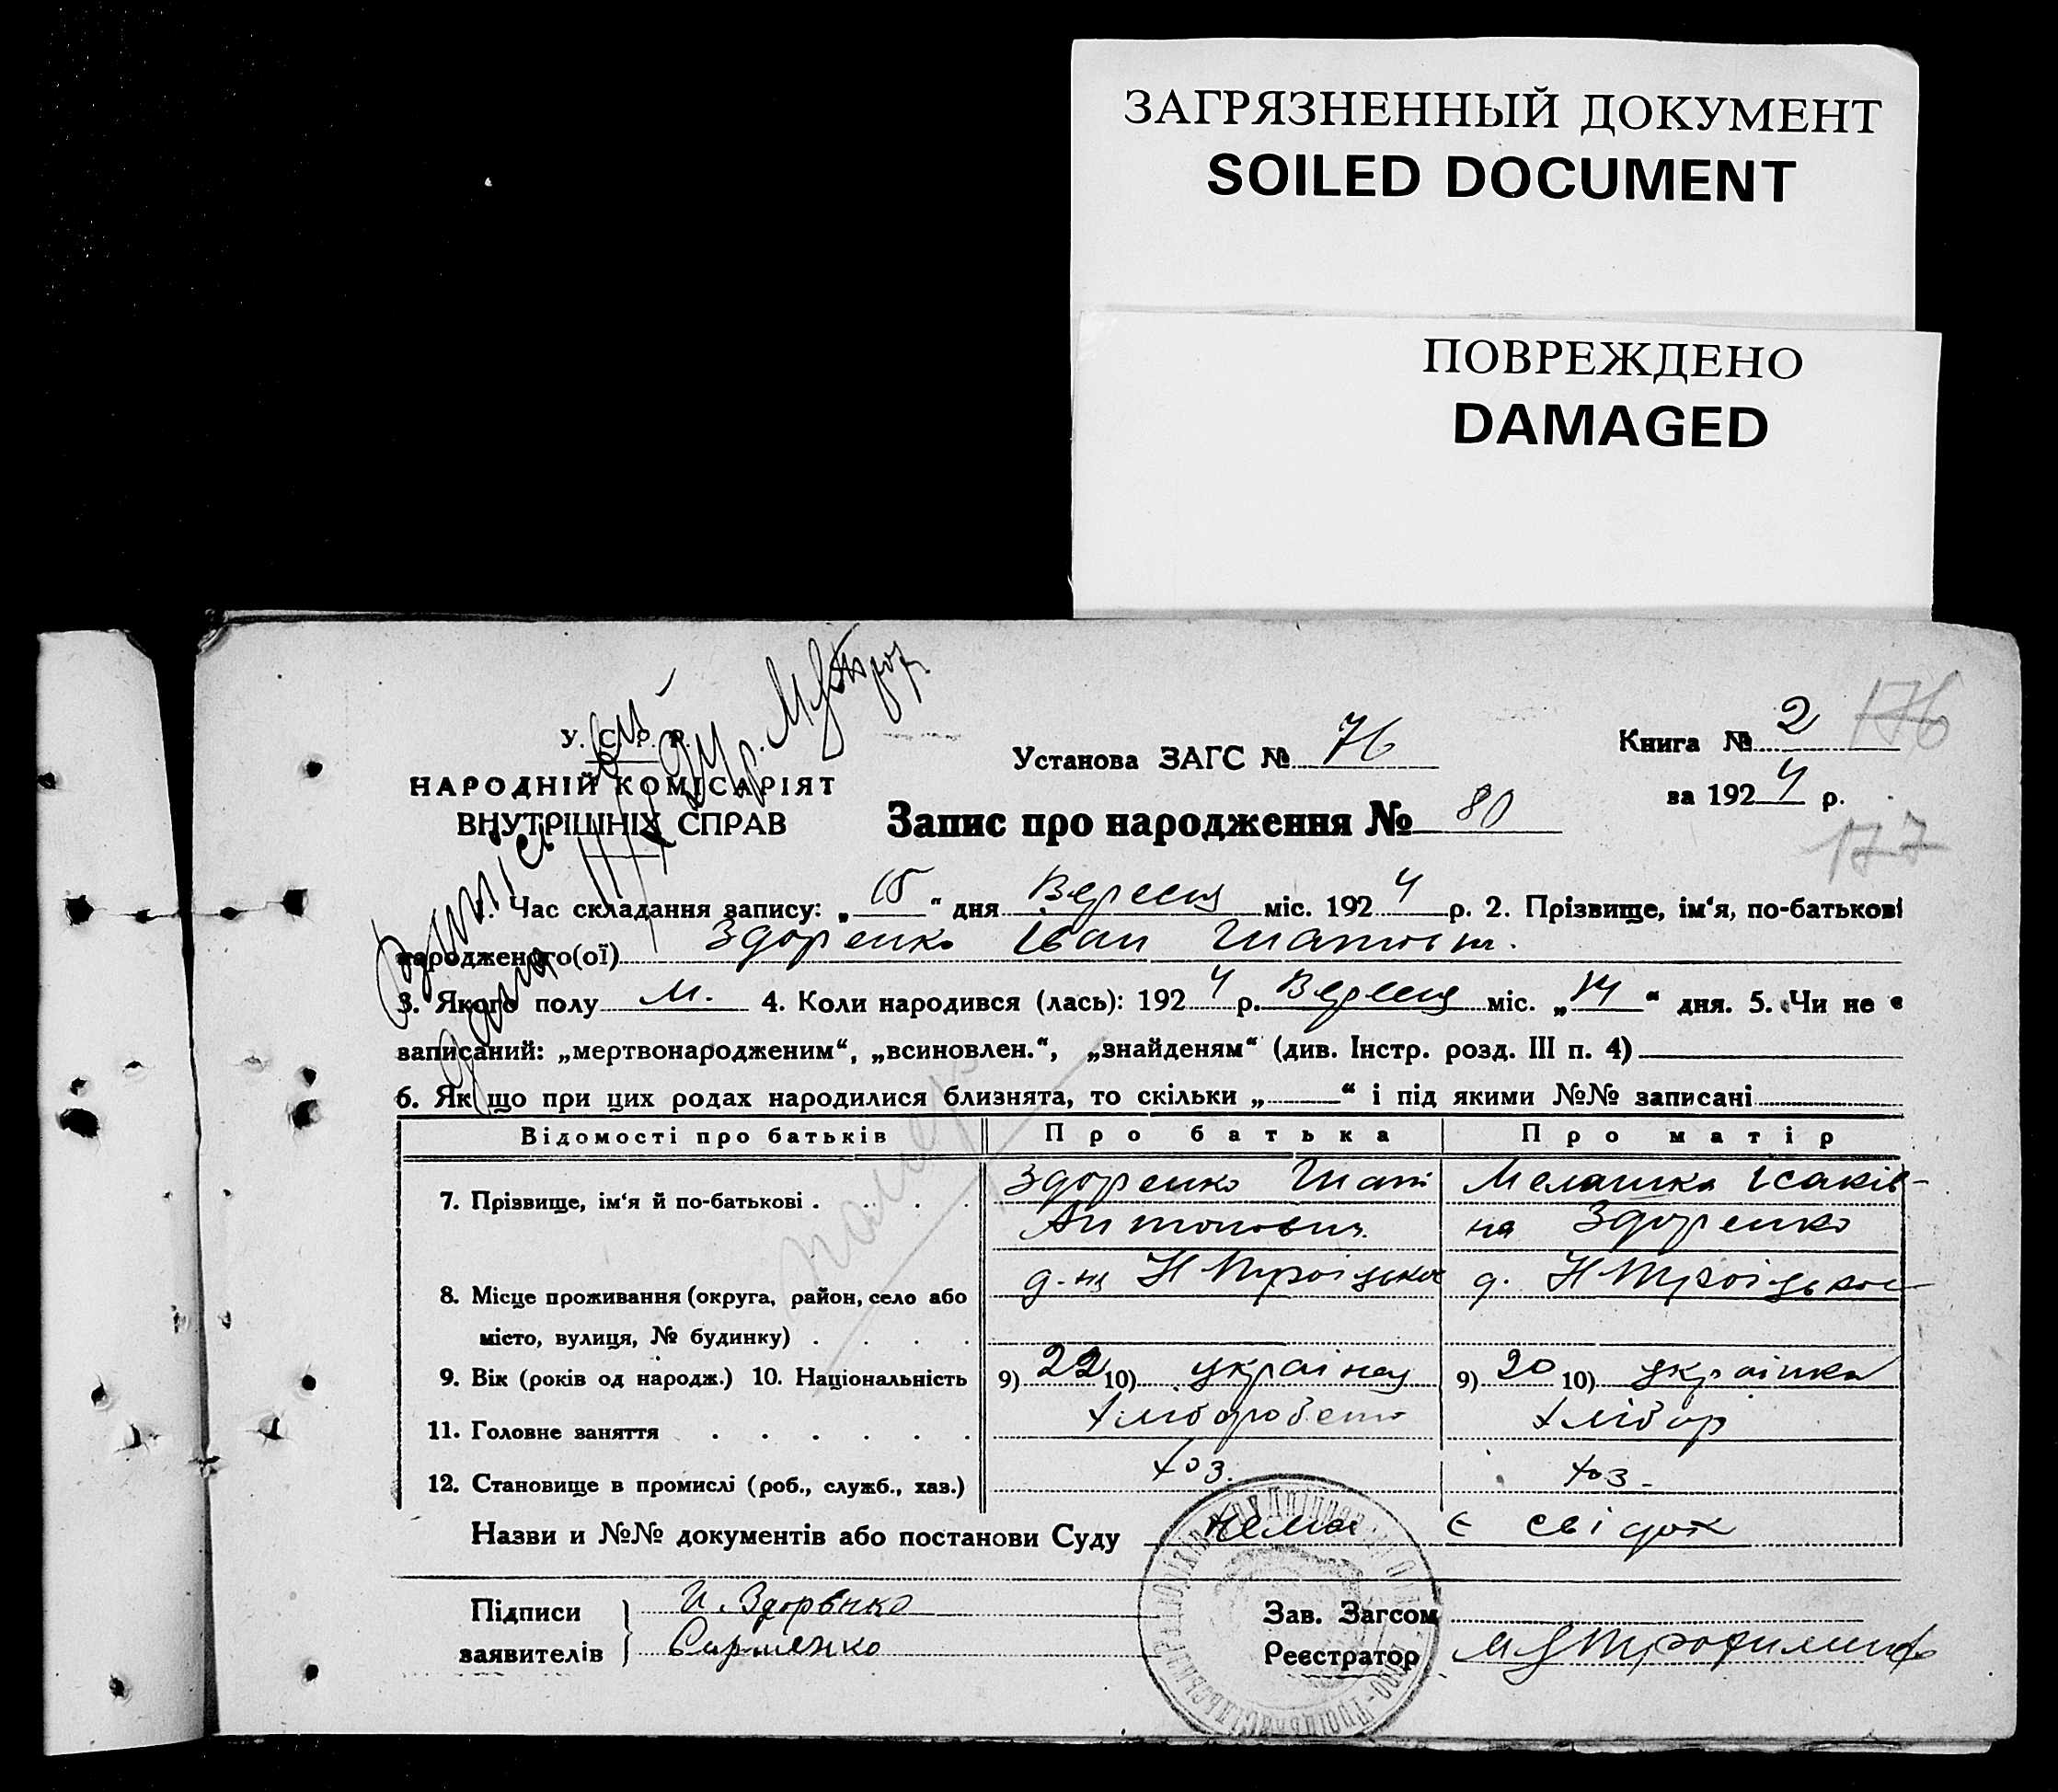 ЗАГРЯЗНЕННЫЙ ДОКУМЕНТ
SOILED DOCUMENT
ПОВРЕЖДЕНО
DAMAGED
У. С. Р. Р.
НАРОДНІЙ КОМІСАРІЯТ
ВНУТРІШНІХ СПРАВ
Установа ЗАГС № 76
Книга № 2 176
за 1924 р.
Запис про народження № 80
177
1. Час складання запису: „15“ дня Вересня міс. 1924 р. 2. Прізвище, ім‘я, по-батькові
народженого(ої) Здоренко Іван
3. Якого полу м. 4. Коли народився (лась): 1924 р. Вересня міс. „14“ дня. 5. Чи не є
записаний: „мертвонародженим“, „всиновлен.“, „знайденям“ (див. Інстр. розд. III п. 4)
6. Як що при цих родах народилися близнята, то скільки „ “ і під якими №№ записані
Відомості про батьків Про батька Про матір
7. Прізвище, ім‘я й по-батькові . . . . Здоренко Мелашка Ісаків-
Антонович на Здоренко
8. Місце проживання (округа, район, село або Н Троіцьке д. Н Троіцькое
місто, вулиця, № будинку) . . . .
9. Вік (років од народж.) 10. Національність 9) 22 10) українец 9) 20 10) українка
11. Головне заняття . . . . . . хлібор
12. Становище в промислі (роб., служб., хаз.) хоз. хоз.
Назви и №№ документів або постанови Суду нема є свідок
Підписи заявителів И. Здоренко
Зав. Загсом
Реєстратор